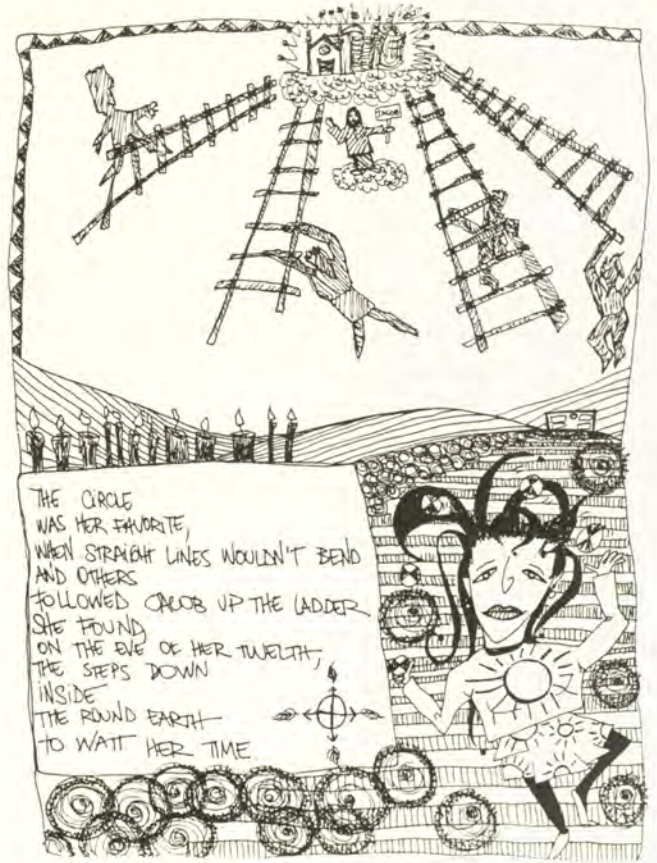 JACOB
THE CIRCLE
WAS HER FAVORITE,
WHEN STRAIGHT LINES WOULDN'T BEND
AND OTHERS
FOLLOWED CALOB UP THE LADDER
SHE FOUND
ON THE EVE OF HER TWELTH,
THE STEPS DOWN
INSIDE
THE ROUND EARTH
TO WAIT HER TIME